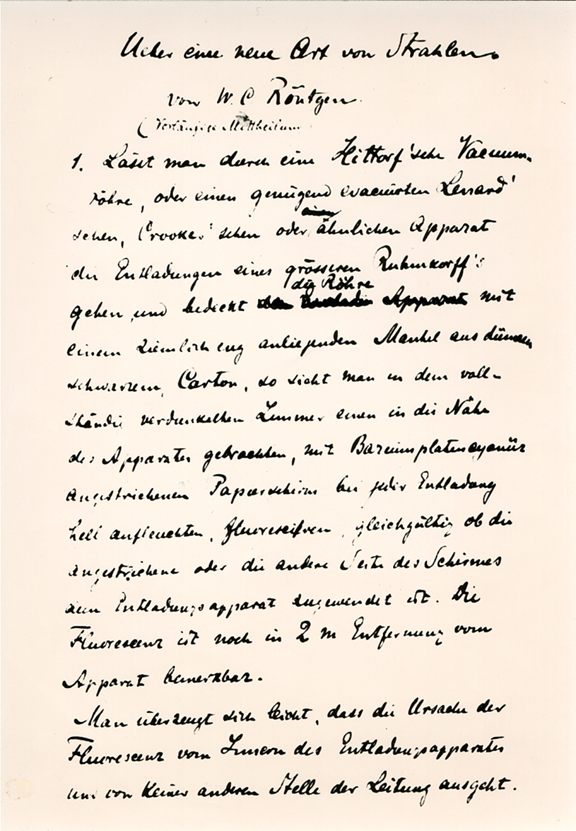 Ueber eine neue Art von Strahlen.
von W. C. Röntgen.
(Vorläufige Mittheilung
1. Lässt man durch eine Hittorf'sche Vacuum-
röhre, oder einen genügend evacuirten Lenard'
schen, Crookes'schen oder ähnlichen Apparat
die Entladungen eines grösseren Ruhmkorff's
gehen und bedeckt die Röhre mit
einem ziemlich eng anliegenden Mantel aus dünnem
schwarzem Carton, so sieht man in dem voll-
ständig verdunkelten Zimmer einen in die Nähe
des Apparates gebrachten, mit Bariumplatincyanür
angestrichenen Papierschirm bei jeder Entladung
hell aufleuchten, fluoresciren, gleichgültig ob die
angestrichene oder die andere Seite des Schirmes
dem Entladungsapparat zugewendet ist. Die
Fluorescenz ist noch in 2 m Entfernung vom
Apparat bemerkbar.
Man überzeugt sich leicht, dass die Ursache der
Fluorescenz vom Innern des Entladungsapparates
und von keiner anderen Stelle der Leitung ausgeht.